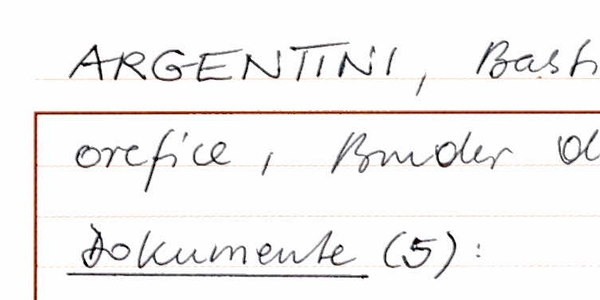 ARGENTINI, Bast
orefice, Bruder d
Dokumente (5):